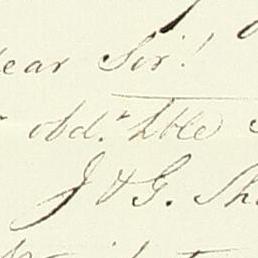 ear Sir!
obd.t hble
J & G. Sh